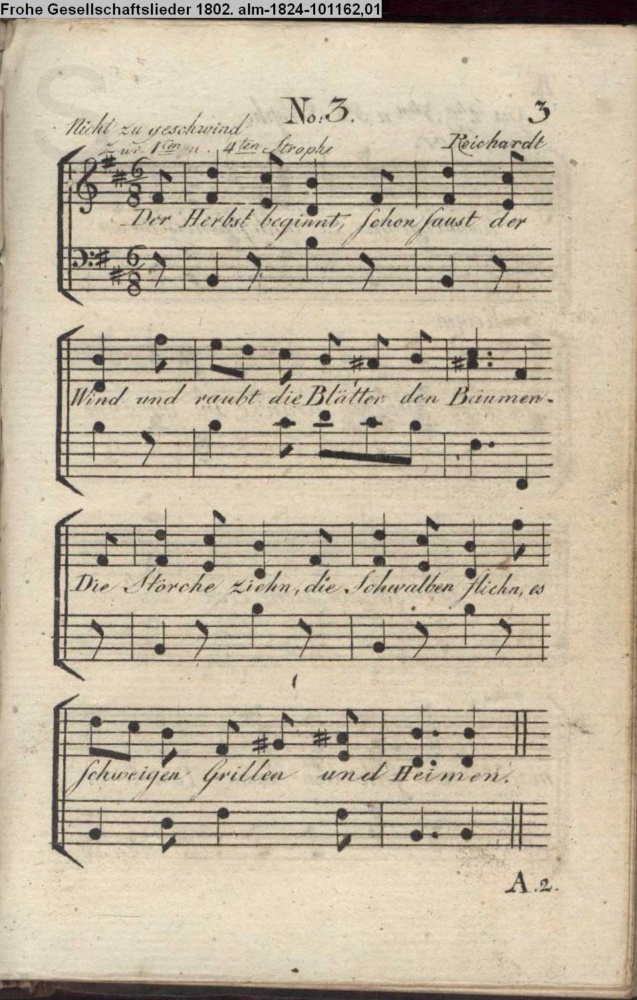 Frohe Gesellschaftslieder 1802. alm-1824-101162,01
No: 3.
3
Nicht zu geschwind
zur 1ten u. 4ten Strophe
Reichardt
Der Herbst beginnt, schon saust der
Wind und raubt die Blätter den Bäumen.
Die Störche ziehn, die Schwalben fliehn, es
schweigen Grillen und Heimen.
A.2.